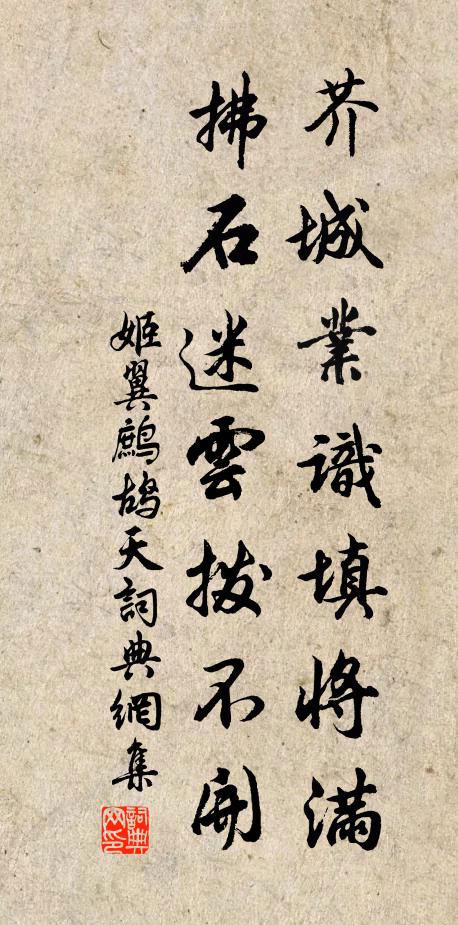 芥城業識填將滿
拂石迷雲撥不開
姬翼鷓鴣天詞典網集
詞典网印